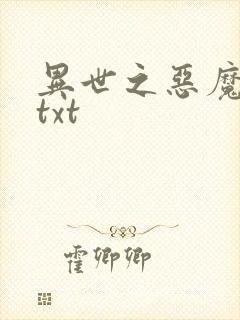 異世之惡魔
txt
霍卿卿